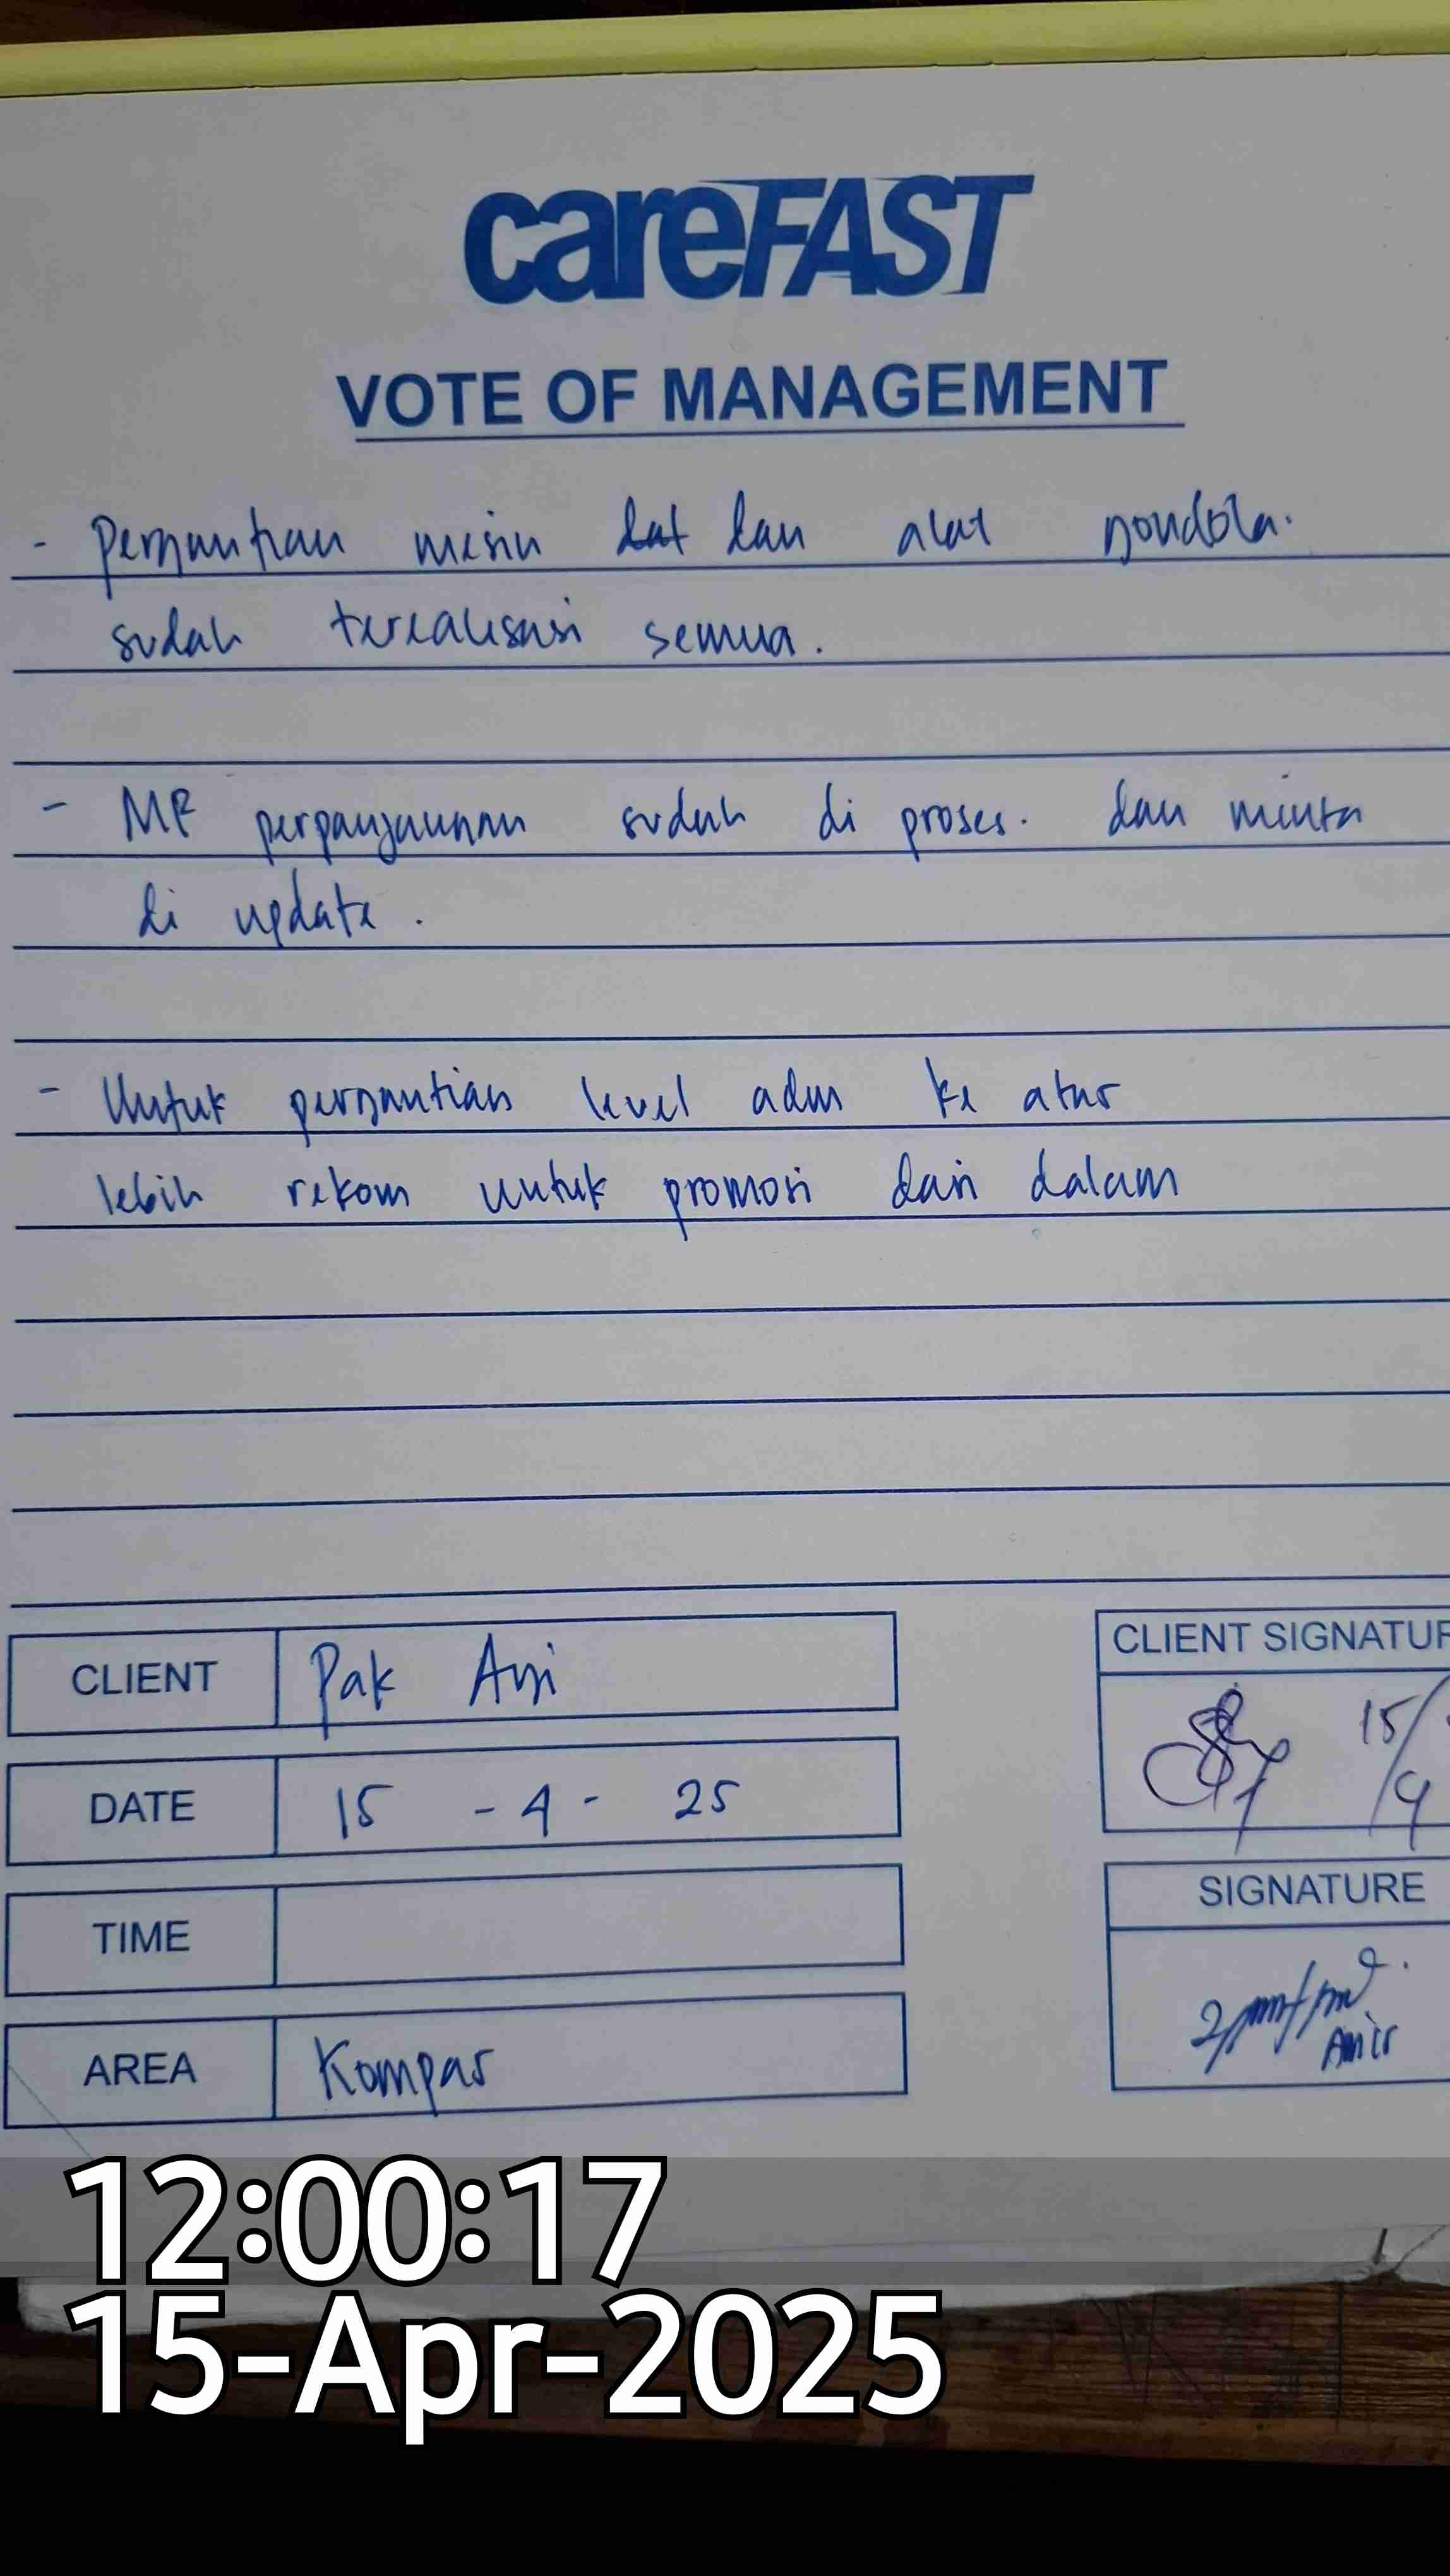 careFAST
VOTE OF MANAGEMENT
- Pergantian mesin dat dan alat gondola.
sudah terealisasi semua.
- MF perpanjangan sudah di proses. dan minta
di update.
- Untuk pergantian level adm ke atas
lebih rekom untuk promosi dari dalam
CLIENT Pak
DATE 15 - 4 - 25
TIME
AREA Kompas
CLIENT SIGNATUR
15/4
SIGNATURE
12:00:17
15-Apr-2025